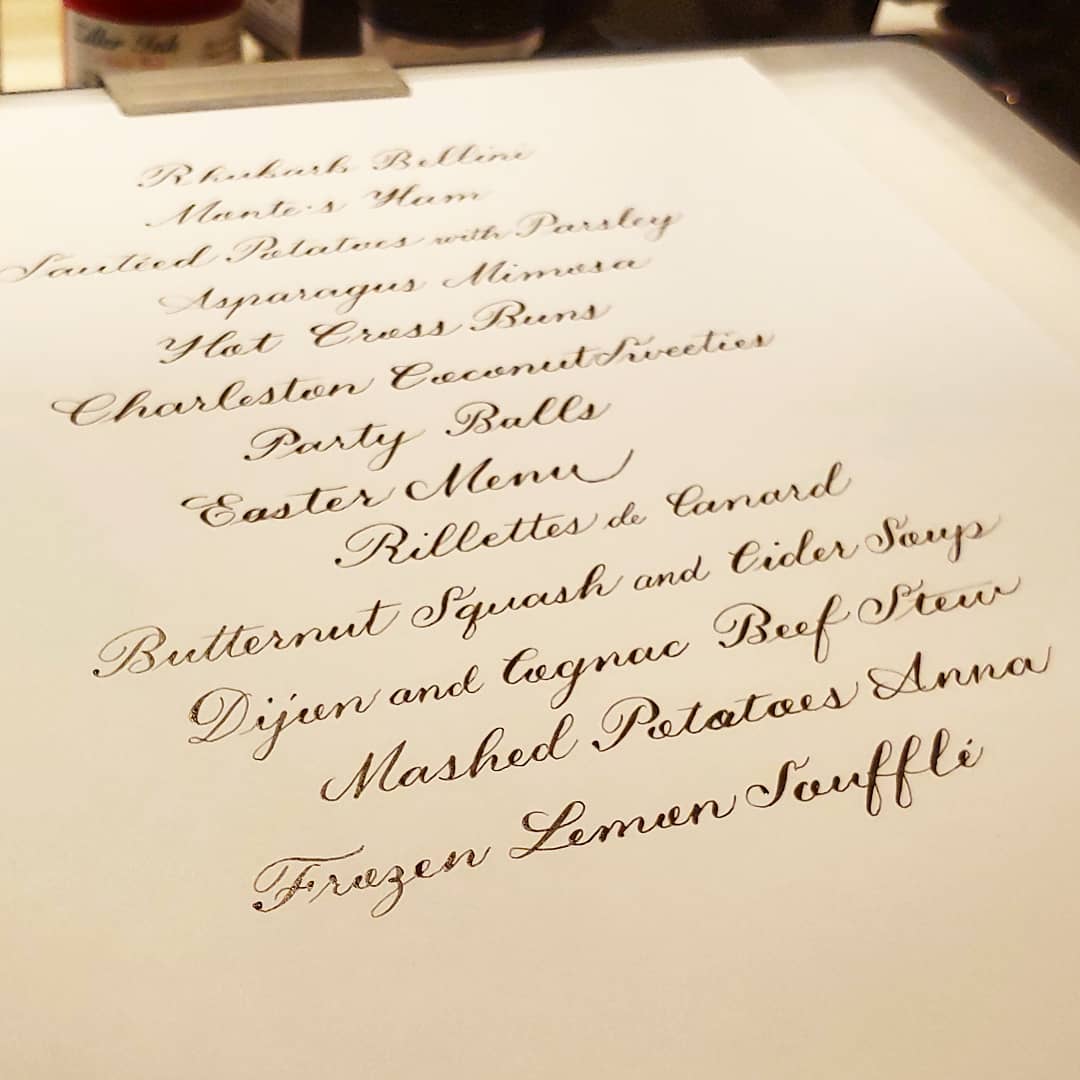 Rhubarb Bellini
Monte's Ham
Sautéed Potatoes with Parsley
Asparagus Mimosa
Hot Cross Buns
Charleston Coconut Sweeties
Party Balls
Easter Menu
Rillettes de Canard
Butternut Squash and Cider Soup
Dijon and Cognac Beef Stew
Mashed Potatoes Anna
Frozen Lemon Soufflé